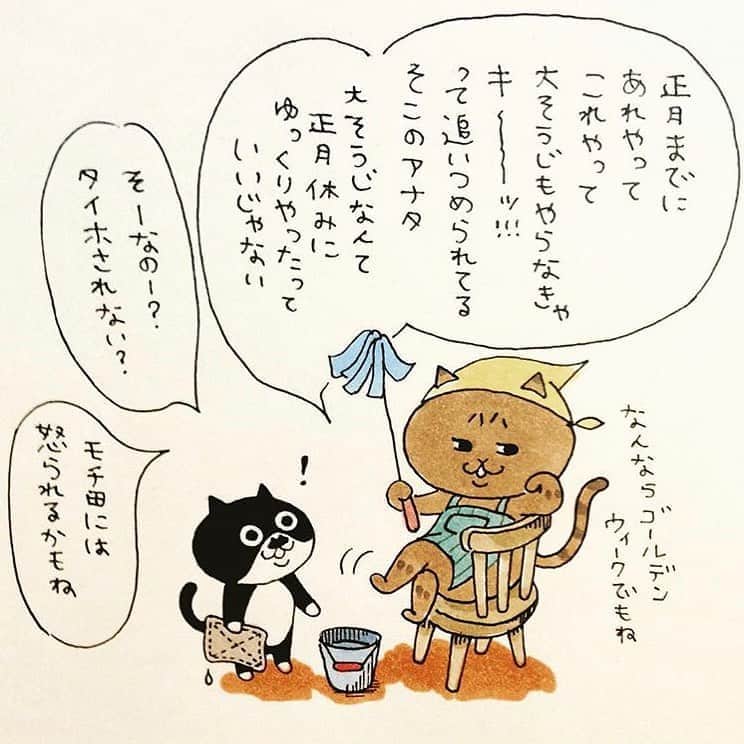 正月までに
あれやって
これやって
大そうじもやらなきゃ
キ〜〜〜ッ!!!
って追いつめられてる
そこのアナタ
大そうじなんて
正月休みに
ゆっくりやったって
いいじゃない
なんならゴールデン
ウィークでもね
!
そーなのー?
タイホされない?
モチ田には
怒られるかもね